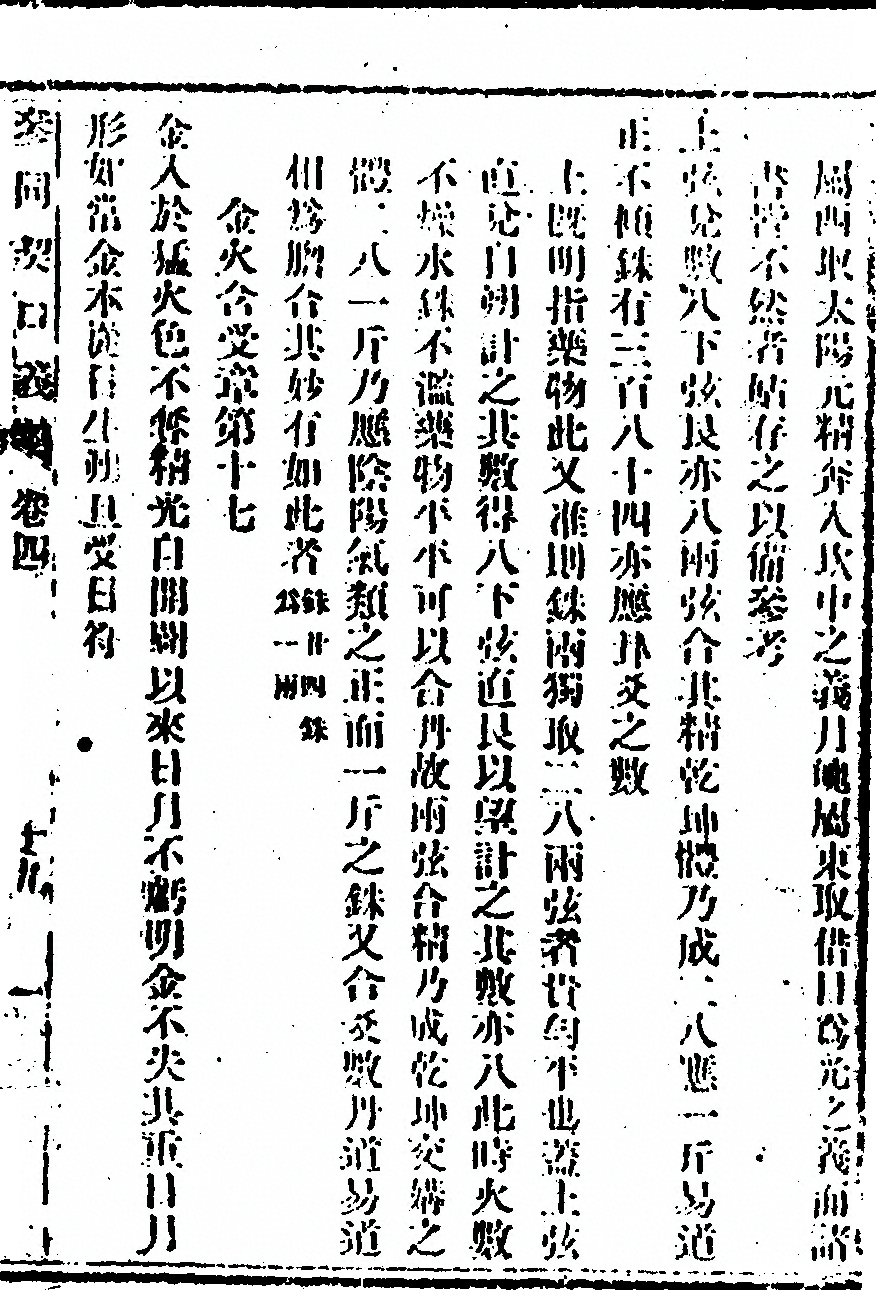 屬西取太陽元精奔入其中之義月魄屬東取借日爲光之義而諸
書皆不然者姑存之以備參考
上弦兌數八下弦艮亦八兩弦合其精乾坤體乃成二八應一斤易道
正不傾銖有三百八十四亦應卦爻之數
上既明指藥物此又准則銖兩獨取二八兩弦者貴勻平也蓋上弦
直兌自朔計之其數得八下弦直艮以望計之其數亦八此時火數
不燥水銖不濫藥物平平可以合丹故兩弦合精乃成乾坤交媾之
體二八一斤乃應陰陽氣類之正而一斤之銖又合爻數丹道易道
相爲脗合其妙有如此者銖廿四銖爲一兩
金火含受章第十七
金入於猛火色不奪精光自開闢以來日月不虧明金不失其重日月
形如常金本從日生朔旦受日符
參同契口義 卷四